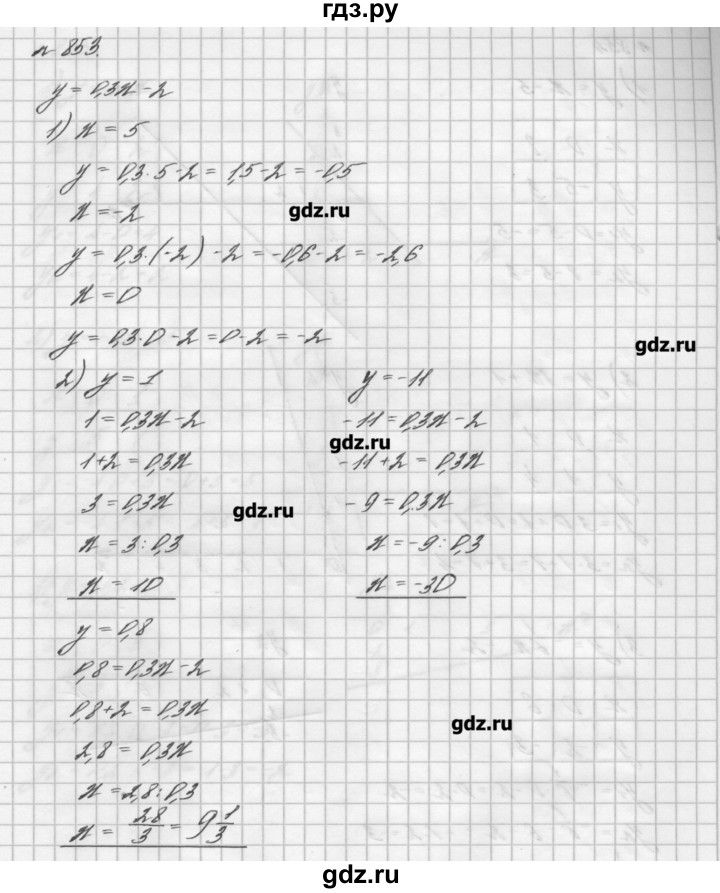 гдз.ру
№ 853.
y = 0,3x - 2
1) x = 5
y = 0,3·5-2 = 1,5-2 = -0,5
x = -2
gdz.ru
y = 0,3·(-2) - 2 = -0,6-2 = -2,6
x = 0
y = 0,3·0 - 2 = 0-2 = -2
gdz.ru
2) y = 1
1 = 0,3x - 2
1+2 = 0,3x
3 = 0,3x
x = 3:0,3
x = 10
y = -11
-11 = 0,3x - 2
gdz.ru
-11+2 = 0,3x
-9 = 0,3x
x = -9:0,3
x = -30
gdz.ru
y = 0,8
0,8 = 0,3x - 2
0,8+2 = 0,3x
gdz.ru
2,8 = 0,3x
x = 2,8:0,3
x = 28/3 = 9 1/3
gdz.ru